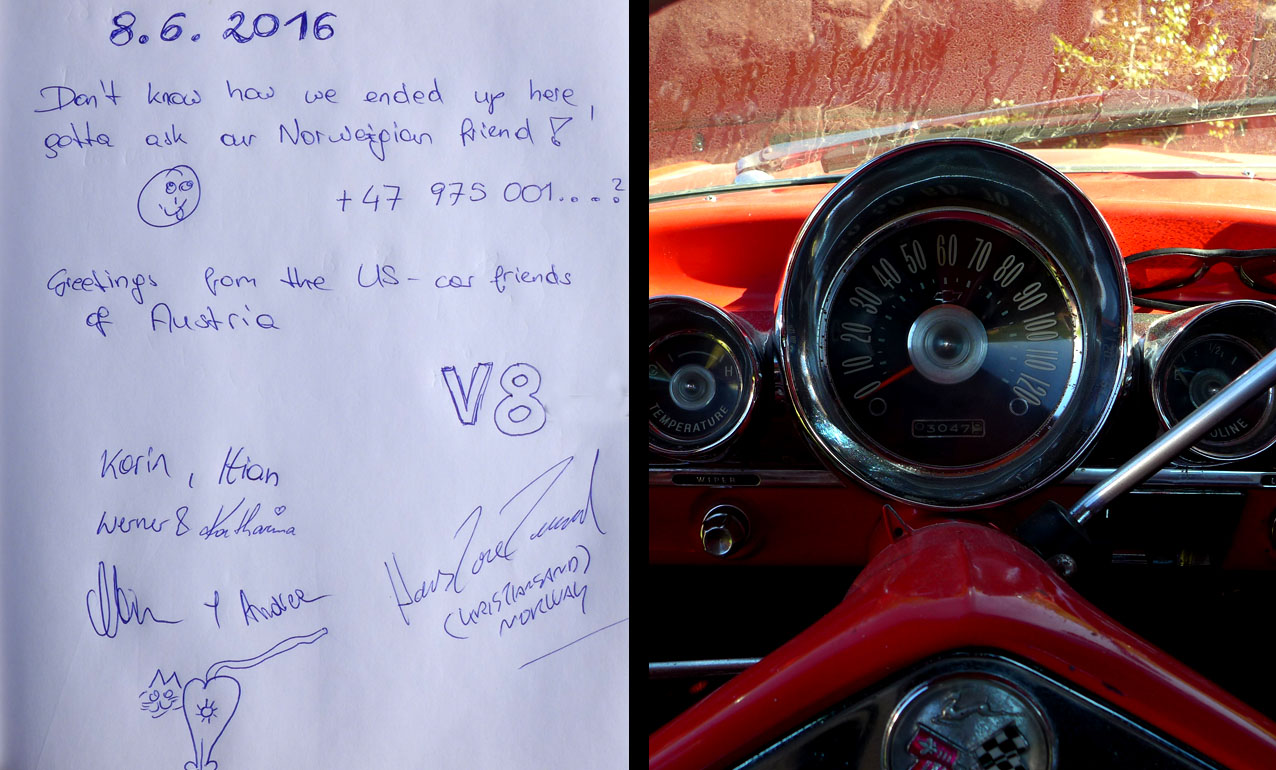 8.6.2016
Don't know how we ended up here,
gotta ask our Norweigian friend!
+47 975 001....?
Greetings from the US-car friends
of Austria
V8
Karin,
Werner & Katharina
+ Andrea
(CHRISTIANSAND)
NORWAY
0 10 20 30 40 50 60 70 80 90 100 110 120
H
TEMPERATURE
WIPER